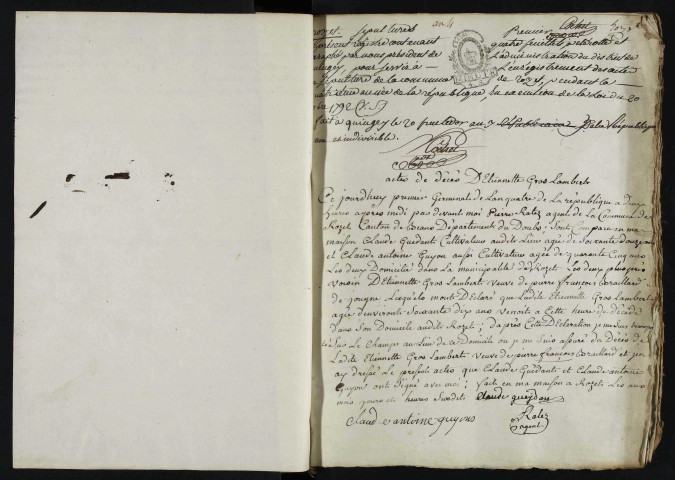 an 4
Rozet. Sepultures Premier
Present registre contenant quatre feuillets
paraphé par nous président de L'administration du district de
quingey pour servir à L'enregistrement des actes
sepulture de la commune de Rozet, pendant la
quatrieme année de la république, en execution de la loi du 20
1792 (V.S)
fait à quingey le 20 fructidor an 3 de la République
une et indivisible.
actes de décès D'Etiennette Gros Lambert
Ce jourdhuy premier Germinal de Lan quatre de La république a deux
heures apres midi pardevant moi Pierre Ratez agent de La Commune de
Rozet Canton de Département du Doubs; Sont Comparu en ma
maison Claude Guedant Cultivateur audits Lieu agé de Soixante douze ans
et Claude antoine Guyon aussi Cultivateur agés de quarante Cinq ans
Les deux Domicilié dans La municipalité de Rozet. Les deux plus près
voisin D'Etiennette Gros Lambert veuve de pierre françois
de jougne Lesquels mont Déclaré que Ladite Etiennette Gros Lambert
agée denviront Soixante dix ans venoit a Cette heure de décédé
Dans Son Domicile audite Rozet; Daprès Cette Déclaration je me suis transpor
té Sur Le Champs au Lieu de ce Domicile ou je me Suis assuré du Décès de
Ladite Etiennette Gros Lambert veuve de pierre françois et jen
ay dressé Le présent actes que Claude Guedant et Claude antoine
Guyon ont Signé avec moi; fait en ma maison a Rozet Les an
mois jours et heures Susdit Claude gueydan
Claud antoine guyons Ratez
agent